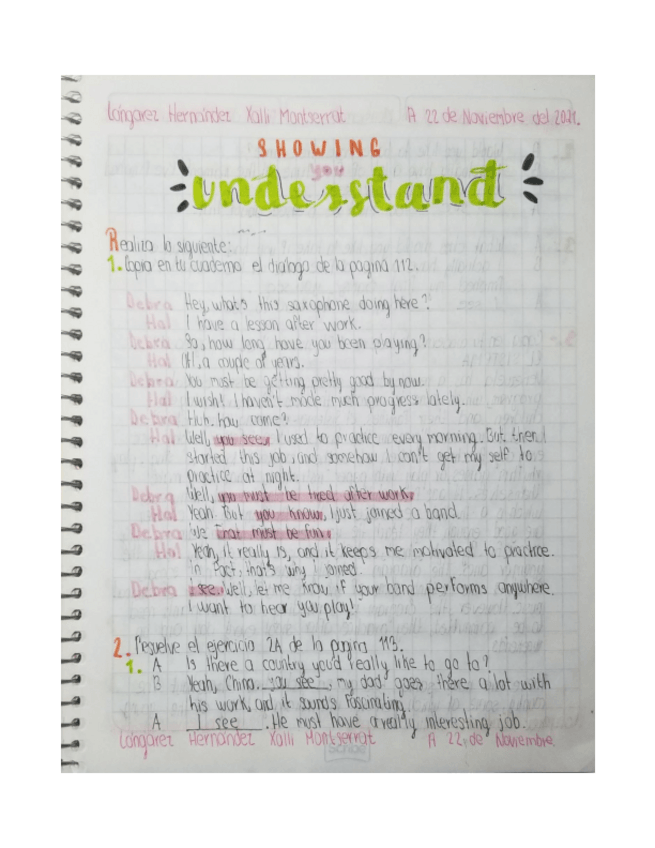 Longarez Hernández Xalli Montserrat A 22 de Noviembre del 2021.
SHOWING
you
understand
Realiza lo siguiente:
1. Copia en tu cuaderno el dialogo de la pagina 112.
Debra Hey, what's this saxophone doing here?
Hal I have a lesson after work.
Debra So, how long have you been playing?
Hal Oh, a couple of years.
Debra You must be getting pretty good by now.
Hal I wish! I haven't made much progress lately.
Debra Huh, how come?
Hal Well, you see, I used to practice every morning. But then I
started this job, and somehow I can't get my self to
practice at night.
Debra Well, you must be tired after work.
Hal Yeah. But you know, I just joined a band.
Debra that must be fun.
Hal Yeah, it really is, and it keeps me motivated to practice.
In fact, that's why I joined.
Debra I see. Well, let me know if your band performs anywhere.
I want to hear you play!
2. Resuelve el ejercicio 2A de la pagina 113.
1. A Is there a country you'd really like to go to?
B Yeah, China. you see, my dad goes there a lot with
his work, and it sounds fascinating.
A I see. He must have a really interesting job.
Longarez Hernández Xalli Montserrat A 22 de Noviembre.